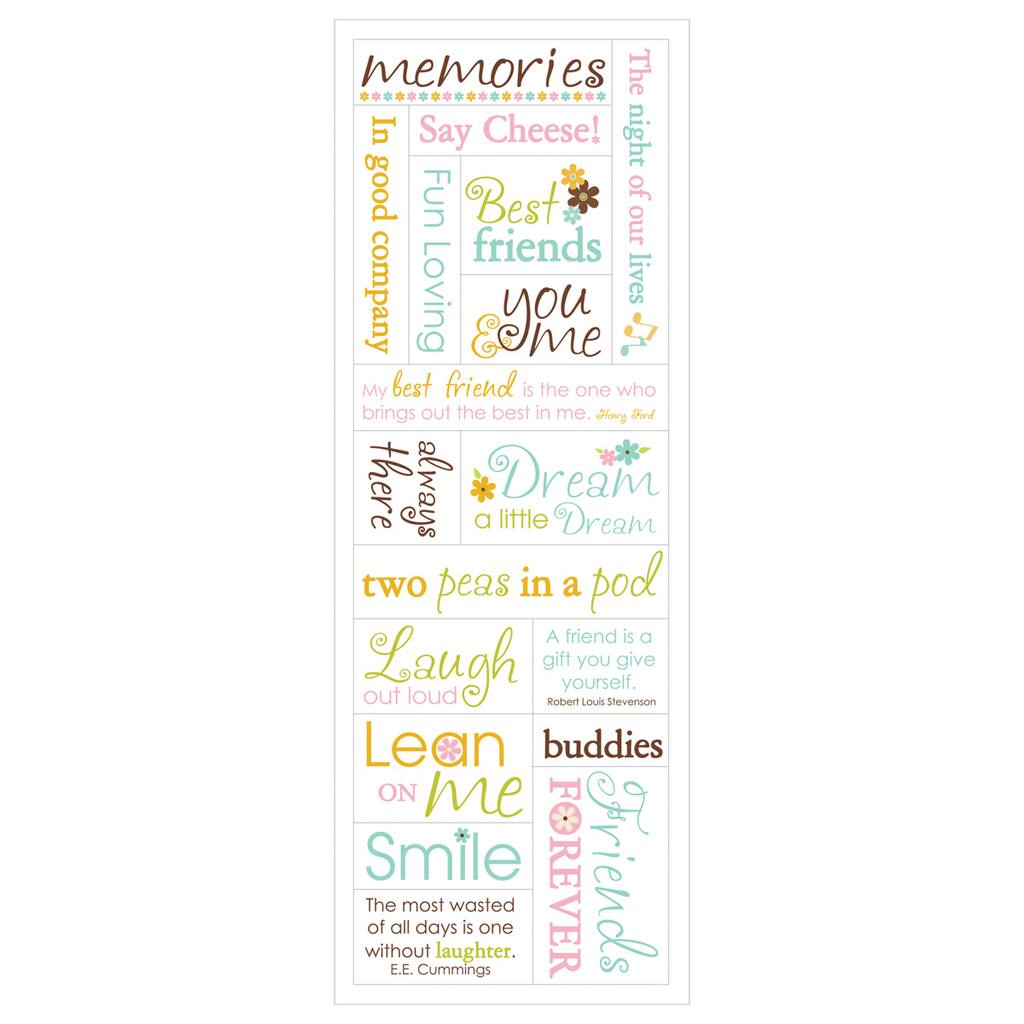 memories
The night of our lives
In good company
Say Cheese!
Fun Loving
Best
friends
you
& me
My best friend is the one who
brings out the best in me. Henry Ford
always
there
Dream
a little Dream
two peas in a pod
Laugh
out loud
A friend is a
gift you give
yourself.
Robert Louis Stevenson
Lean
ON me
buddies
Friends
FOREVER
Smile
The most wasted
of all days is one
without laughter.
E.E. Cummings